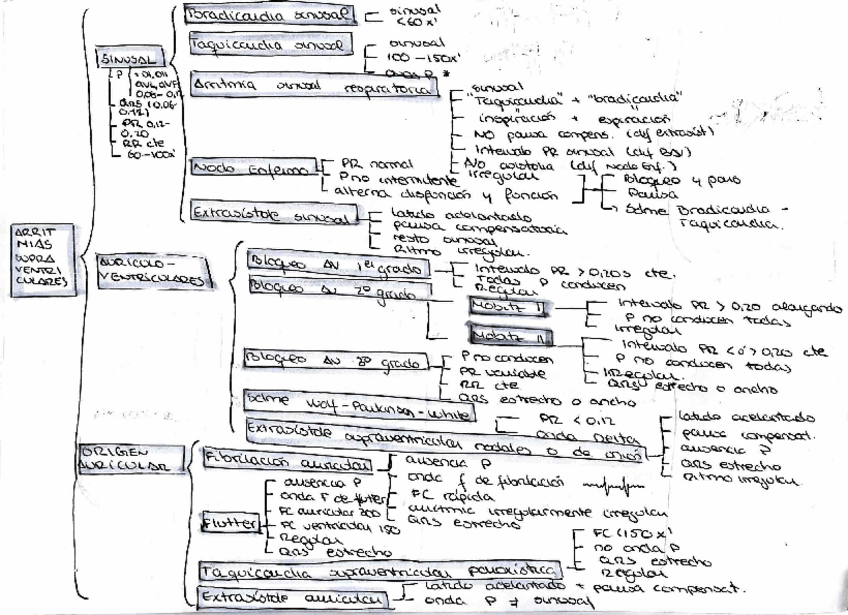 ARRIT
MIAS
SUPRA
VENTRI
CULARES
SINUSAL
P
AVL, AVF
QRS (0.06-
0.12)
PR 0.12-
0.20
RR cte
60-100x'
Bradicardia sinusal
sinusal
<60 x'
Taquicardia sinusal
sinusal
100-150x'
ondas P *
Arritmia sinusal respiratoria
sinusal
"Taquicardia" + "bradicardia"
inspiración + espiración
NO pausa compens. (dif extrasist)
Intervalo PR sinusal (dif
No asistolia (dif Nodo Enf.)
irregular
Nodo Enfermo
PR normal
P no intermitente
alterna disfunción y función
Bloqueo y paro
Pausa
Sdme Bradicardia -
Taquicardia.
Extrasístole sinusal
latido adelantado
pausa compensatoria
resto sinusal
Ritmo irregular.
AURICULO-
VENTRICULARES
Bloqueo AV 1er grado
Intervalo PR > 0,20s cte.
Todas P conducen
Regular
Bloqueo AV 2º grado
Mobitz I
Intervalo PR > 0,20 alargando
P no conducen todas
irregular
Mobitz II
Intervalo PR < ó > 0,20 cte
P no conducen todas
IRRegular.
QRS estrecho o ancho
Bloqueo AV 3º grado
P no conducen
PR variable
RR cte
QRS estrecho o ancho
Sdme Wolf-Parkinson-White
PR < 0.12
onda Delta
Extrasístole supraventricular nodales o de unión
latido adelantado
pausa compensat.
ausencia P
QRS estrecho
Ritmo irregular.
ORIGEN
AURICULAR
Fibrilación auricular
ausencia P
onda f de fibrilación
FC rápida
arritmia irregularmente irregular
QRS estrecho
Flutter
ausencia P
onda F de flutter
FC auricular 300
FC ventricular 150
Regular
QRS estrecho
Taquicardia supraventricular paroxística
FC <150 x'
no onda P
QRS estrecho
Regular
Extrasístole auricular
latido adelantado + pausa compensat.
onda P ≠ sinusal